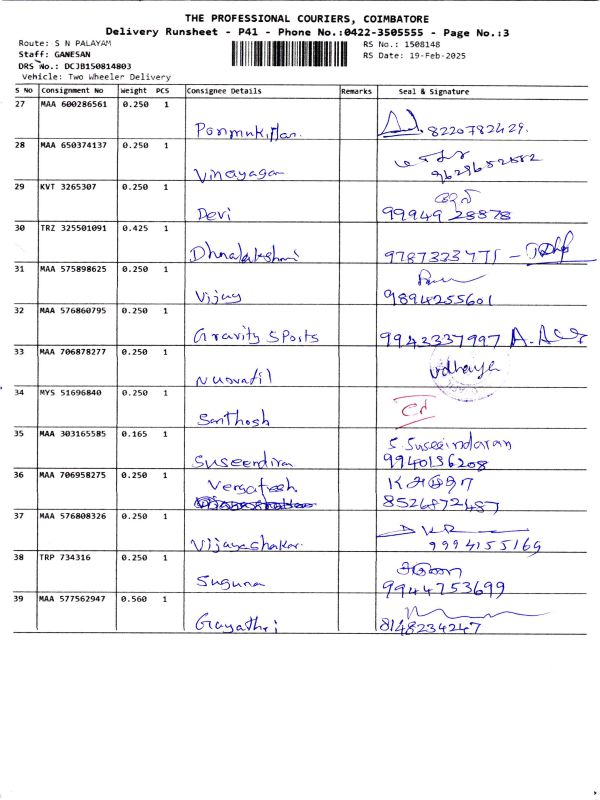 THE PROFESSIONAL COURIERS, COIMBATORE
Delivery Runsheet - P41 - Phone No.:0422-3505555 - Page No.:3
Route: S N PALAYAM
RS No.: 1508148
Staff: GANESAN
RS Date: 19-Feb-2025
DRS No.: DCJB150814803
Vehicle: Two Wheeler Delivery
S No Consignment No Weight PCS Consignee Details Remarks Seal & Signature
27 MAA 600286561 0.250 1
8220782429.
28 MAA 650374137 0.250 1
Vinayagan 9629682582
29 KVT 3265307 0.250 1
Devi 99949 28878
30 TRZ 325501091 0.425 1
Dhnalakshmi 9787323775
31 MAA 575898625 0.250 1
Vijay 9894255601
32 MAA 576860795 0.250 1
Gravity Sports 9943337997
33 MAA 706878277 0.250 1
vdhaya
34 MYS 51696840 0.250 1
Santhosh
35 MAA 303165585 0.165 1
S. Suseeindaran
Suseendiran 9940136208
36 MAA 706958275 0.250 1
8526872487
37 MAA 576808326 0.250 1
Vijayashakar. 9994155169
38 TRP 734316 0.250 1
Suguna 9944753699
39 MAA 577562947 0.560 1
Gayathri 8148234247